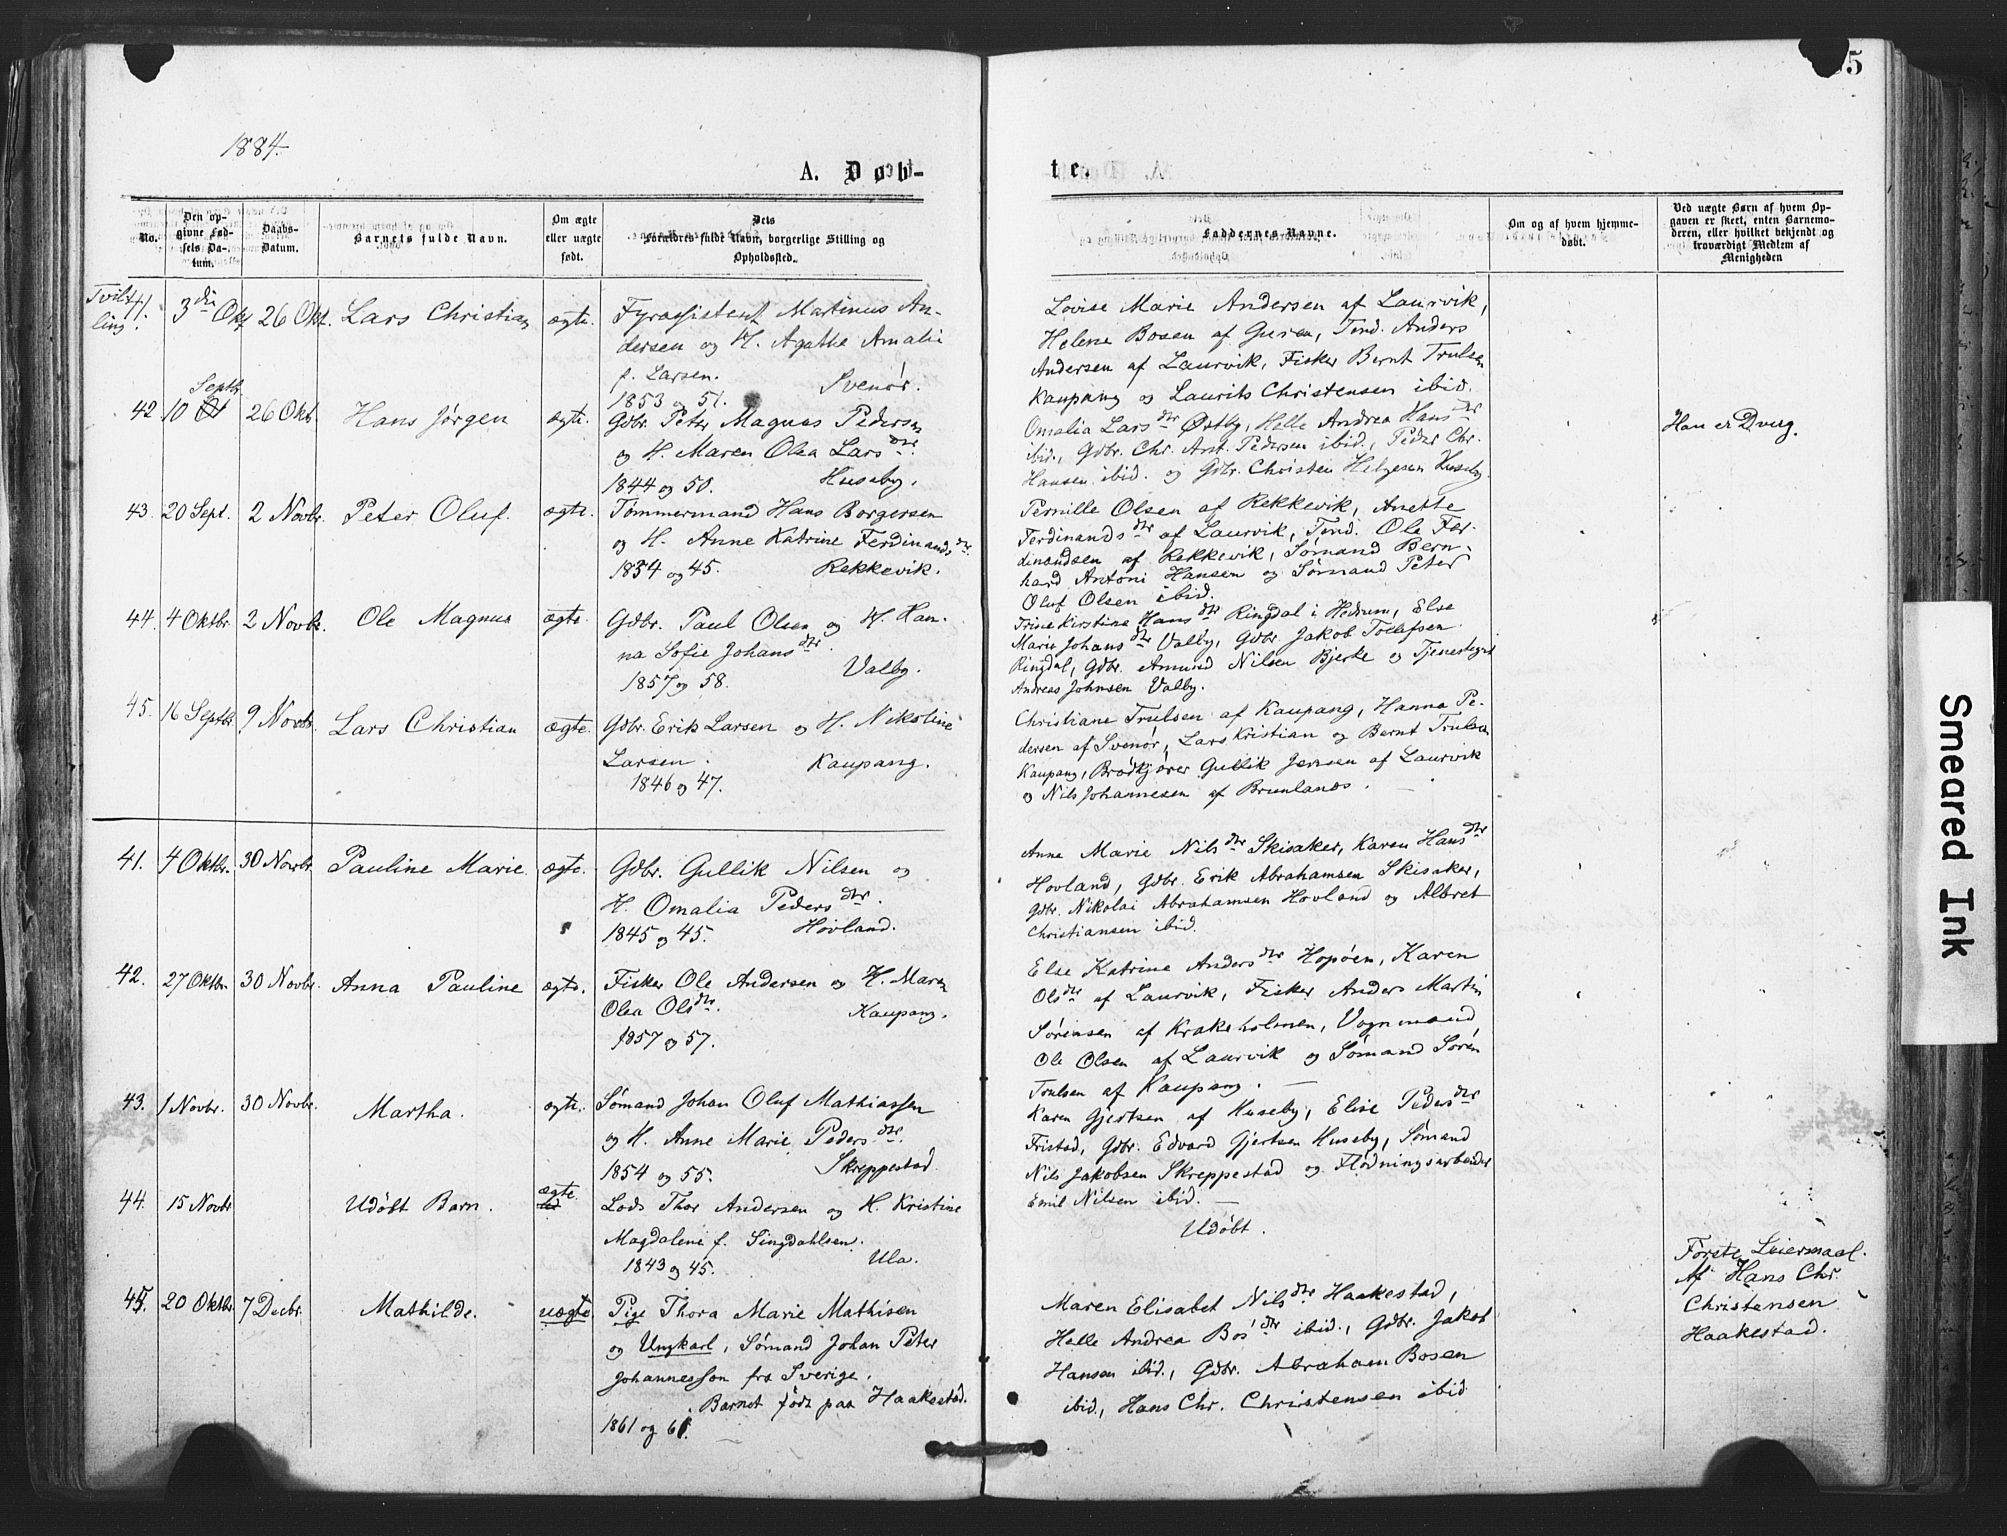 1884.
5
A. Døb-
te.
No.
Den op-
givne Fød-
sels Da-
tum.
Daabs-
Datum.
Barnets fulde Navn.
Om ægte
eller uægte
født.
Dets
Forældres fulde Navn, borgerlige Stilling og
Opholdssted.
Faddernes Navne.
Om og af hvem hjemme-
døbt.
Ved uægte Børn af hvem Op-
gaven er skeet, enten Barnemo-
deren, eller hvilket bekjendt og
troværdigt Medlem af
Menigheden
Tvil-
ling
41. 3die Okt 26 Okt. Lars Christian ægte.
Fyrassistent Martinus An-
dersen og H. Agathe Amalie
f. Larsen. Svenør.
1853 og 51.
Lovise Marie Andersen af Laurvik,
Helene Bosen af Guren, Tmd. Anders
Andersen af Laurvik, Fisker Bernt Trulsen
Kaupang og Laurits Christensen ibid.
42 10 Septbr 26 Oktb. Hans Jørgen ægte.
Gdbr. Peter Magnus Pedersen
og H. Maren Olea Larsdtr.
1844 og 50. Huseby.
Omalia Larsdtr Østby, Helle Andrea Hansdtr
ibid., Gdbr. Chr. Ant. Pedersen ibid., Peder Chr.
Hansen ibid. og Gdbr. Christen Helgesen Huseby.
Han er Dverg.
43. 20 Sept. 2 Novbr. Peter Oluf. ægte.
Tømmermand Hans Borgersen
og H. Anne Katrine Ferdinandsdtr
1834 og 45. Rekkevik.
Pernille Olsen af Rekkevik, Anette
Ferdinandsdtr af Laurvik, Tmd. Ole Fer-
dinandsen af Rekkevik, Sømand Bern-
hard Antoni Hansen og Sømand Peter
Oluf Olsen ibid.
44. 4 Oktbr 2 Novbr. Ole Magnus ægte.
Gdbr. Paul Olsen og H. Han-
na Sofie Johansdtr.
1857 og 58. Valby.
Trine Kirstine Hansdtr Ringdal i Hedrum, Else
Marie Johansdtr Valby, Gdbr. Jakob Tollefsen
Ringdal, Gdbr. Amund Nilsen Bjerke og Tjenestegut
Andreas Johnsen Valby.
45. 16 Septbr. 9 Novbr. Lars Christian ægte.
Gdbr. Erik Larsen og H. Nikoline
Larsen. Kaupang.
1846 og 47.
Christiane Trulsen af Kaupang, Hanna Pe-
dersen af Svenør, Lars Kristian og Bernt Trulsen
Kaupang, Brødkjører Gullik Jensen af Laurvik
og Nils Johannesen af Brunlanes.
41. 4 Oktbr. 30 Novbr. Pauline Marie ægte.
Gdbr. Gullik Nilsen og
H. Omalia Pedersdtr.
1845 og 45. Hovland.
Anne Marie Nilsdtr Skisaker, Karen Hansdtr
Hovland, Gdbr. Erik Abrahamsen Skisaker,
Gdbr. Nikolai Abrahamsen Hovland og Albret
Christiansen ibid.
42. 27 Oktbr 30 Novbr. Anna Pauline ægte.
Fisker Ole Andersen og H. Maren
Olea Olsdtr. Kaupang.
1857 og 57.
Else Katrine Andersdtr Hopøen, Karen
Olsdtr af Laurvik, Fisker Anders Martin
Sørensen af Krakeholmen, Vognmand
Ole Olsen af Laurvik og Sømand Søren
Trulsen af Kaupang.
43. 1 Novbr. 30 Novbr. Martha. ægte.
Sømand Johan Oluf Mathiassen
og H. Anne Marie Pedersdtr.
1854 og 55. Skreppestad
Karen Gjertsen af Huseby, Elise Pedersdtr
Fristad, Gdbr. Edvard Gjertsen Huseby, Sømand
Nils Jakobsen Skreppestad og Flødningsarbeider
Emil Nilsen ibid.
44. 15 Novbr Udøbt Barn. ægte.
Lods Thor Andersen og H. Kristine
Magdalene f. Singdahlsen.
1843 og 45. Ula.
Udøbt.
45. 20 Oktbr. 7 Decbr. Mathilde. uægte
Pige Thora Marie Mathisen
og Ungkarl, Sømand Johan Peter
Johannesson fra Sverige.
Barnet født paa Haakestad.
1861 og 61.
Maren Elisabet Nilsdtr Haakestad,
Helle Andrea Bosdtr ibid., Gdbr. Jakob
Hansen ibid., Gdbr. Abraham Bosen
ibid., Hans Chr. Christensen ibid
Første Leiermaal.
Af Hans Chr.
Christensen
Haakestad.
Smeared Ink